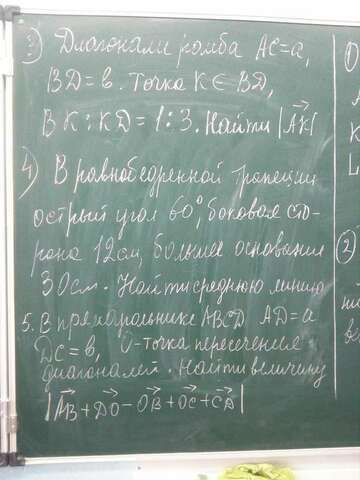 3) Диагонали ромба AC=a,
BD=в. Точка K∈BD,
BK:KD=1:3. Найти |AK|
4) В равнобедренной трапеции
острый угол 60°, боковая сто-
рона 12см, большее основание
30см. Найти среднюю линию
5. В прямоугольнике ABCD AD=a
DC=в, O-точка пересечения
диагоналей. Найти величину
|AB+DO-OB+OC+CD|
(2)